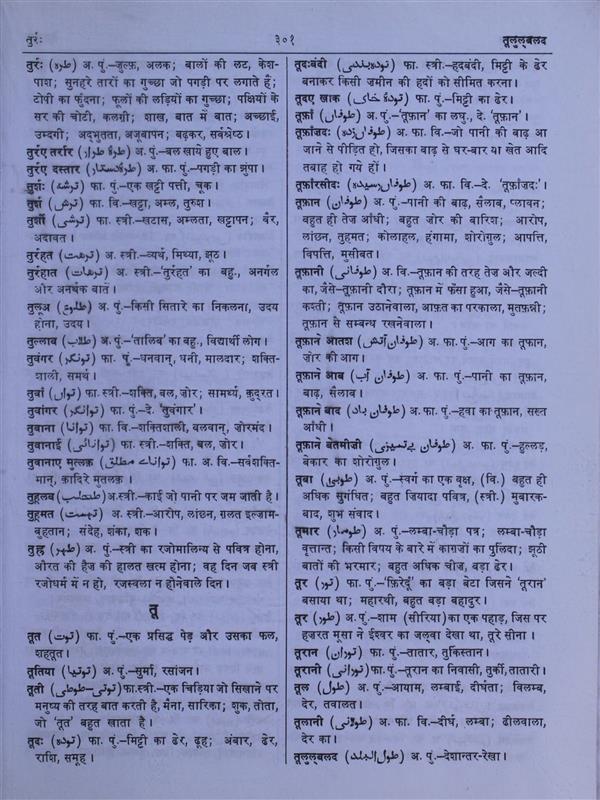 तुर्रः
३०१
तूलुल्बलद
तुर्रः (طره) अ. पुं.–जुल्फ़, अलक; बालों की लट, केश-
पाश; सुनहरे तारों का गुच्छा जो पगड़ी पर लगाते हैं;
टोपी का फुँदना; फूलों की लड़ियों का गुच्छा; पक्षियों के
सर की चोटी, कलग़ी; शाख़, बात में बात; अच्छाई,
उम्दगी; अद्भुतता, अजूबापन; बढ़कर, सर्वश्रेष्ठ।
तुर्रए तर्रार (طرۂ طرار) अ. पुं.–बल खाये हुए बाल।
तुर्रए दस्तार (طرۂ دستار) अ. फा. पुं.–पगड़ी का झुंपा।
तुर्शः (ترشه) फा. पुं.–एक खट्टी पत्ती, चूक।
तुर्श (ترش) फा. वि.–खट्टा, अम्ल, तुरुश।
तुर्शी (ترشی) फा. स्त्री.–खटास, अम्लता, खट्टापन; बैर,
अदावत।
तुर्रहत (ترهت) अ. स्त्री.–व्यर्थ, मिथ्या, झूठ।
तुर्रहात (ترهات) अ. स्त्री.–'तुर्रहत' का बहु., अनर्गल
और अनर्थक बातें।
तुलूअ (طلوع) अ. पुं.–किसी सितारे का निकलना, उदय
होना, उदय।
तुल्लाब (طلاب) अ. पुं.–'तालिब' का बहु., विद्यार्थी लोग।
तुवंगर (تونگر) फा. पुं.–धनवान्, धनी, मालदार; शक्ति-
शाली, समर्थ।
तुवाँ (تواں) फा. स्त्री.–शक्ति, बल, ज़ोर; सामर्थ्य, क़ुद्रत।
तुवांगर (توانگر) फा. पुं.–दे. 'तुवंगर'।
तुवाना (توانا) फा. वि.–शक्तिशाली, बलवान्, ज़ोरमंद।
तुवानाई (توانائی) फा. स्त्री.–शक्ति, बल, ज़ोर।
तुवानाए मुत्लक़ (توانائے مطلق) फा. अ. वि.–सर्वशक्ति-
मान्, क़ादिरे मुत्लक़।
तुहलब (طحلب) अ. स्त्री.–काई जो पानी पर जम जाती है।
तुहमत (تهمت) अ. स्त्री.–आरोप, लांछन, ग़लत इल्ज़ाम-
बुहतान; संदेह, शंका, शक।
तुह्र (طهر) अ. पुं.–स्त्री का रजोमालिन्य से पवित्र होना,
औरत की हैज़ की हालत ख़त्म होना; वह दिन जब स्त्री
रजोधर्म में न हो, रजस्वला न होनेवाले दिन।
तू
तूत (توت) फा. पुं.–एक प्रसिद्ध पेड़ और उसका फल,
शहतूत।
तूतिया (توتیا) अ. पुं.–सुर्मा, रसांजन।
तूती (توتی-طوطی) फा. स्त्री.–एक चिड़िया जो सिखाने पर
मनुष्य की तरह बात करती है, मैना, सारिका; शुक, तोता,
जो 'तूत' बहुत खाता है।
तूदः (توده) फा. पुं.–मिट्टी का ढेर, ढूह; अंबार, ढेर,
राशि, समूह।
तूदःबंदी (توده بندی) फा. स्त्री.–हदबंदी, मिट्टी के ढेर
बनाकर किसी ज़मीन की हदों को सीमित करना।
तूदए ख़ाक (تودۂ خاک) फा. पुं.–मिट्टी का ढेर।
तूफ़ाँ (طوفاں) अ. पुं.–'तूफ़ान' का लघु., दे. 'तूफ़ान'।
तूफ़ाँज़दः (طوفاں زده) अ. फा. वि.–जो पानी की बाढ़ आ
जाने से पीड़ित हो, जिसका बाढ़ से घर-बार या खेत आदि
तबाह हो गये हों।
तूफ़ाँरसीदः (طوفاں رسیده) अ. फा. वि.–दे. 'तूफ़ाँज़दः'।
तूफ़ान (طوفان) अ. पुं.–पानी की बाढ़, सैलाब, प्लावन;
बहुत ही तेज़ आँधी; बहुत ज़ोर की बारिश; आरोप,
लांछन, तुहमत; कोलाहल, हंगामा, शोरोग़ुल; आपत्ति,
विपत्ति, मुसीबत।
तूफ़ानी (طوفانی) अ. वि.–तूफ़ान की तरह तेज़ और जल्दी
का, जैसे–तूफ़ानी दौरा; तूफ़ान में फँसा हुआ, जैसे–तूफ़ानी
कश्ती; तूफ़ान उठानेवाला, आफ़त का परकाला, मुतफ़न्नी;
तूफ़ान से सम्बन्ध रखनेवाला।
तूफ़ाने आतश (طوفان آتش) अ. फा. पुं.–आग का तूफ़ान,
ज़ोर की आग।
तूफ़ाने आब (طوفان آب) अ. फा. पुं.–पानी का तूफ़ान,
बाढ़, सैलाब।
तूफ़ाने बाद (طوفان باد) अ. फा. पुं.–हवा का तूफ़ान, सख़्त
आँधी।
तूफ़ाने बेतमीज़ी (طوفان بےتمیزی) अ. फा. पुं.–हुल्लड़,
बेकार का शोरोग़ुल।
तूबा (طوبی) अ. पुं.–स्वर्ग का एक वृक्ष, (वि.) बहुत ही
अधिक सुगंधित; बहुत ज़ियादा पवित्र, (स्त्री.) मुबारक-
बाद, शुभ संवाद।
तूमार (طومار) अ. पुं.–लम्बा-चौड़ा पत्र; लम्बा-चौड़ा
वृत्तान्त; किसी विषय के बारे में काग़ज़ों का पुलिंदा; झूठी
बातों की भरमार; बहुत अधिक चीज़, बड़ा ढेर।
तूर (تور) फा. पुं.–'फ़िरेदूँ' का बड़ा बेटा जिसने 'तूरान'
बसाया था; महारथी, बहुत बड़ा बहादुर।
तूर (طور) अ. पुं.–शाम (सीरिया) का एक पहाड़, जिस पर
हज़रत मूसा ने ईश्वर का जल्वा देखा था, तूरे सीना।
तूरान (توران) फा. पुं.–तातार, तुर्किस्तान।
तूरानी (تورانی) फा. पुं.–तूरान का निवासी, तुर्की, तातारी।
तूल (طول) अ. पुं.–आयाम, लम्बाई, दीर्घता; विलम्ब,
देर, तवालत।
तूलानी (طولانی) अ. फा. वि.–दीर्घ, लम्बा; ढीलवाला,
देर का।
तूलुल्बलद (طول البلد) अ. पुं.–देशान्तर-रेखा।